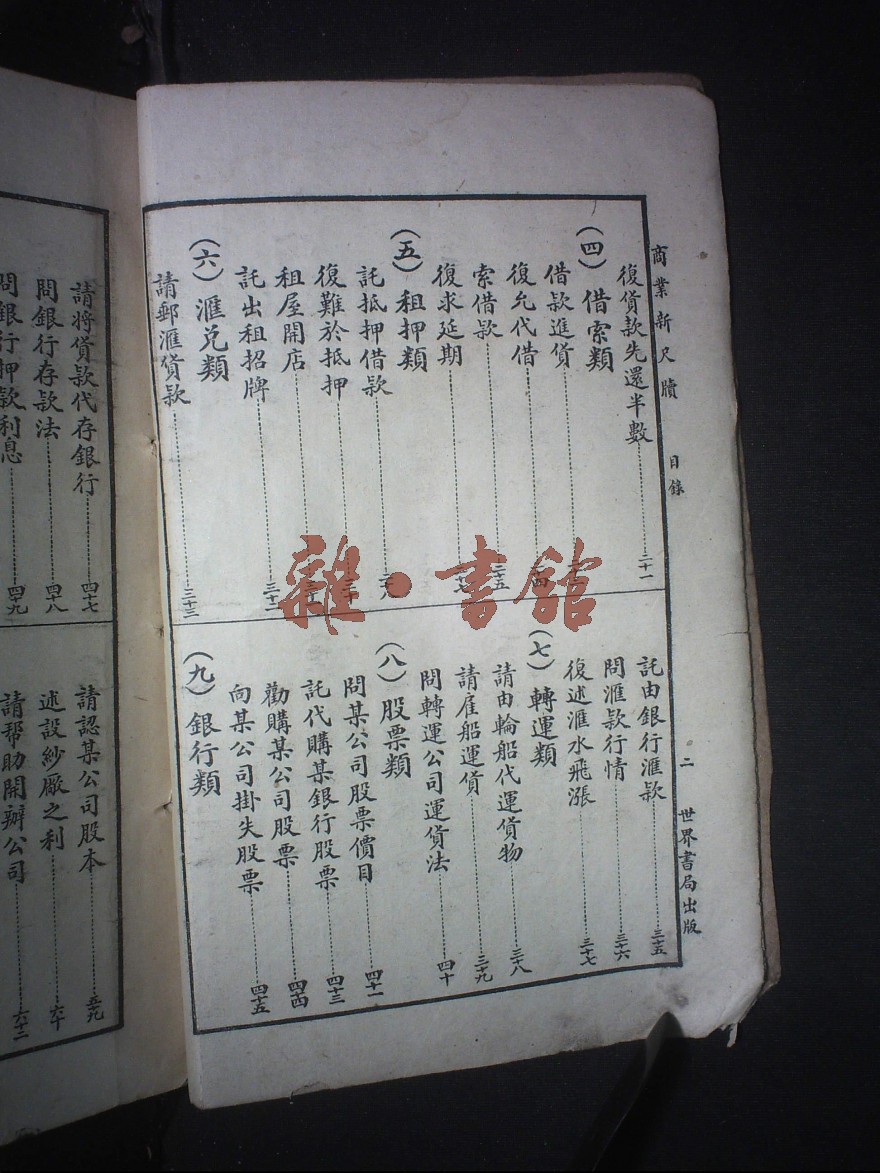 商業新尺牘 目錄 二 世界書局出版
復貨款先還半數 三十一
(四) 借索類
借款進貨
復允代借
索借款 二十五
復求延期
(五) 租押類
託抵押借款
復難於抵押
租屋開店
託出租招牌 三十二
(六) 滙兌類
請郵滙貨款 三十三
託由銀行滙款 三十五
問滙款行情 三十六
復述滙水飛漲 三十七
(七) 轉運類
請由輪船代運貨物 三十八
請雇船運貨 三十九
問轉運公司運貨法 四十
(八) 股票類
問某公司股票價目 四十一
託代購某銀行股票 四十三
勸購某公司股票 四十四
向某公司掛失股票 四十五
(九) 銀行類
請將貨款代存銀行 四十七
問銀行存款法 四十八
問銀行押款利息 四十九
請認某公司股本 五十九
述設紗廠之利 六十
請帮助開辦公司 六十二
雜·書館